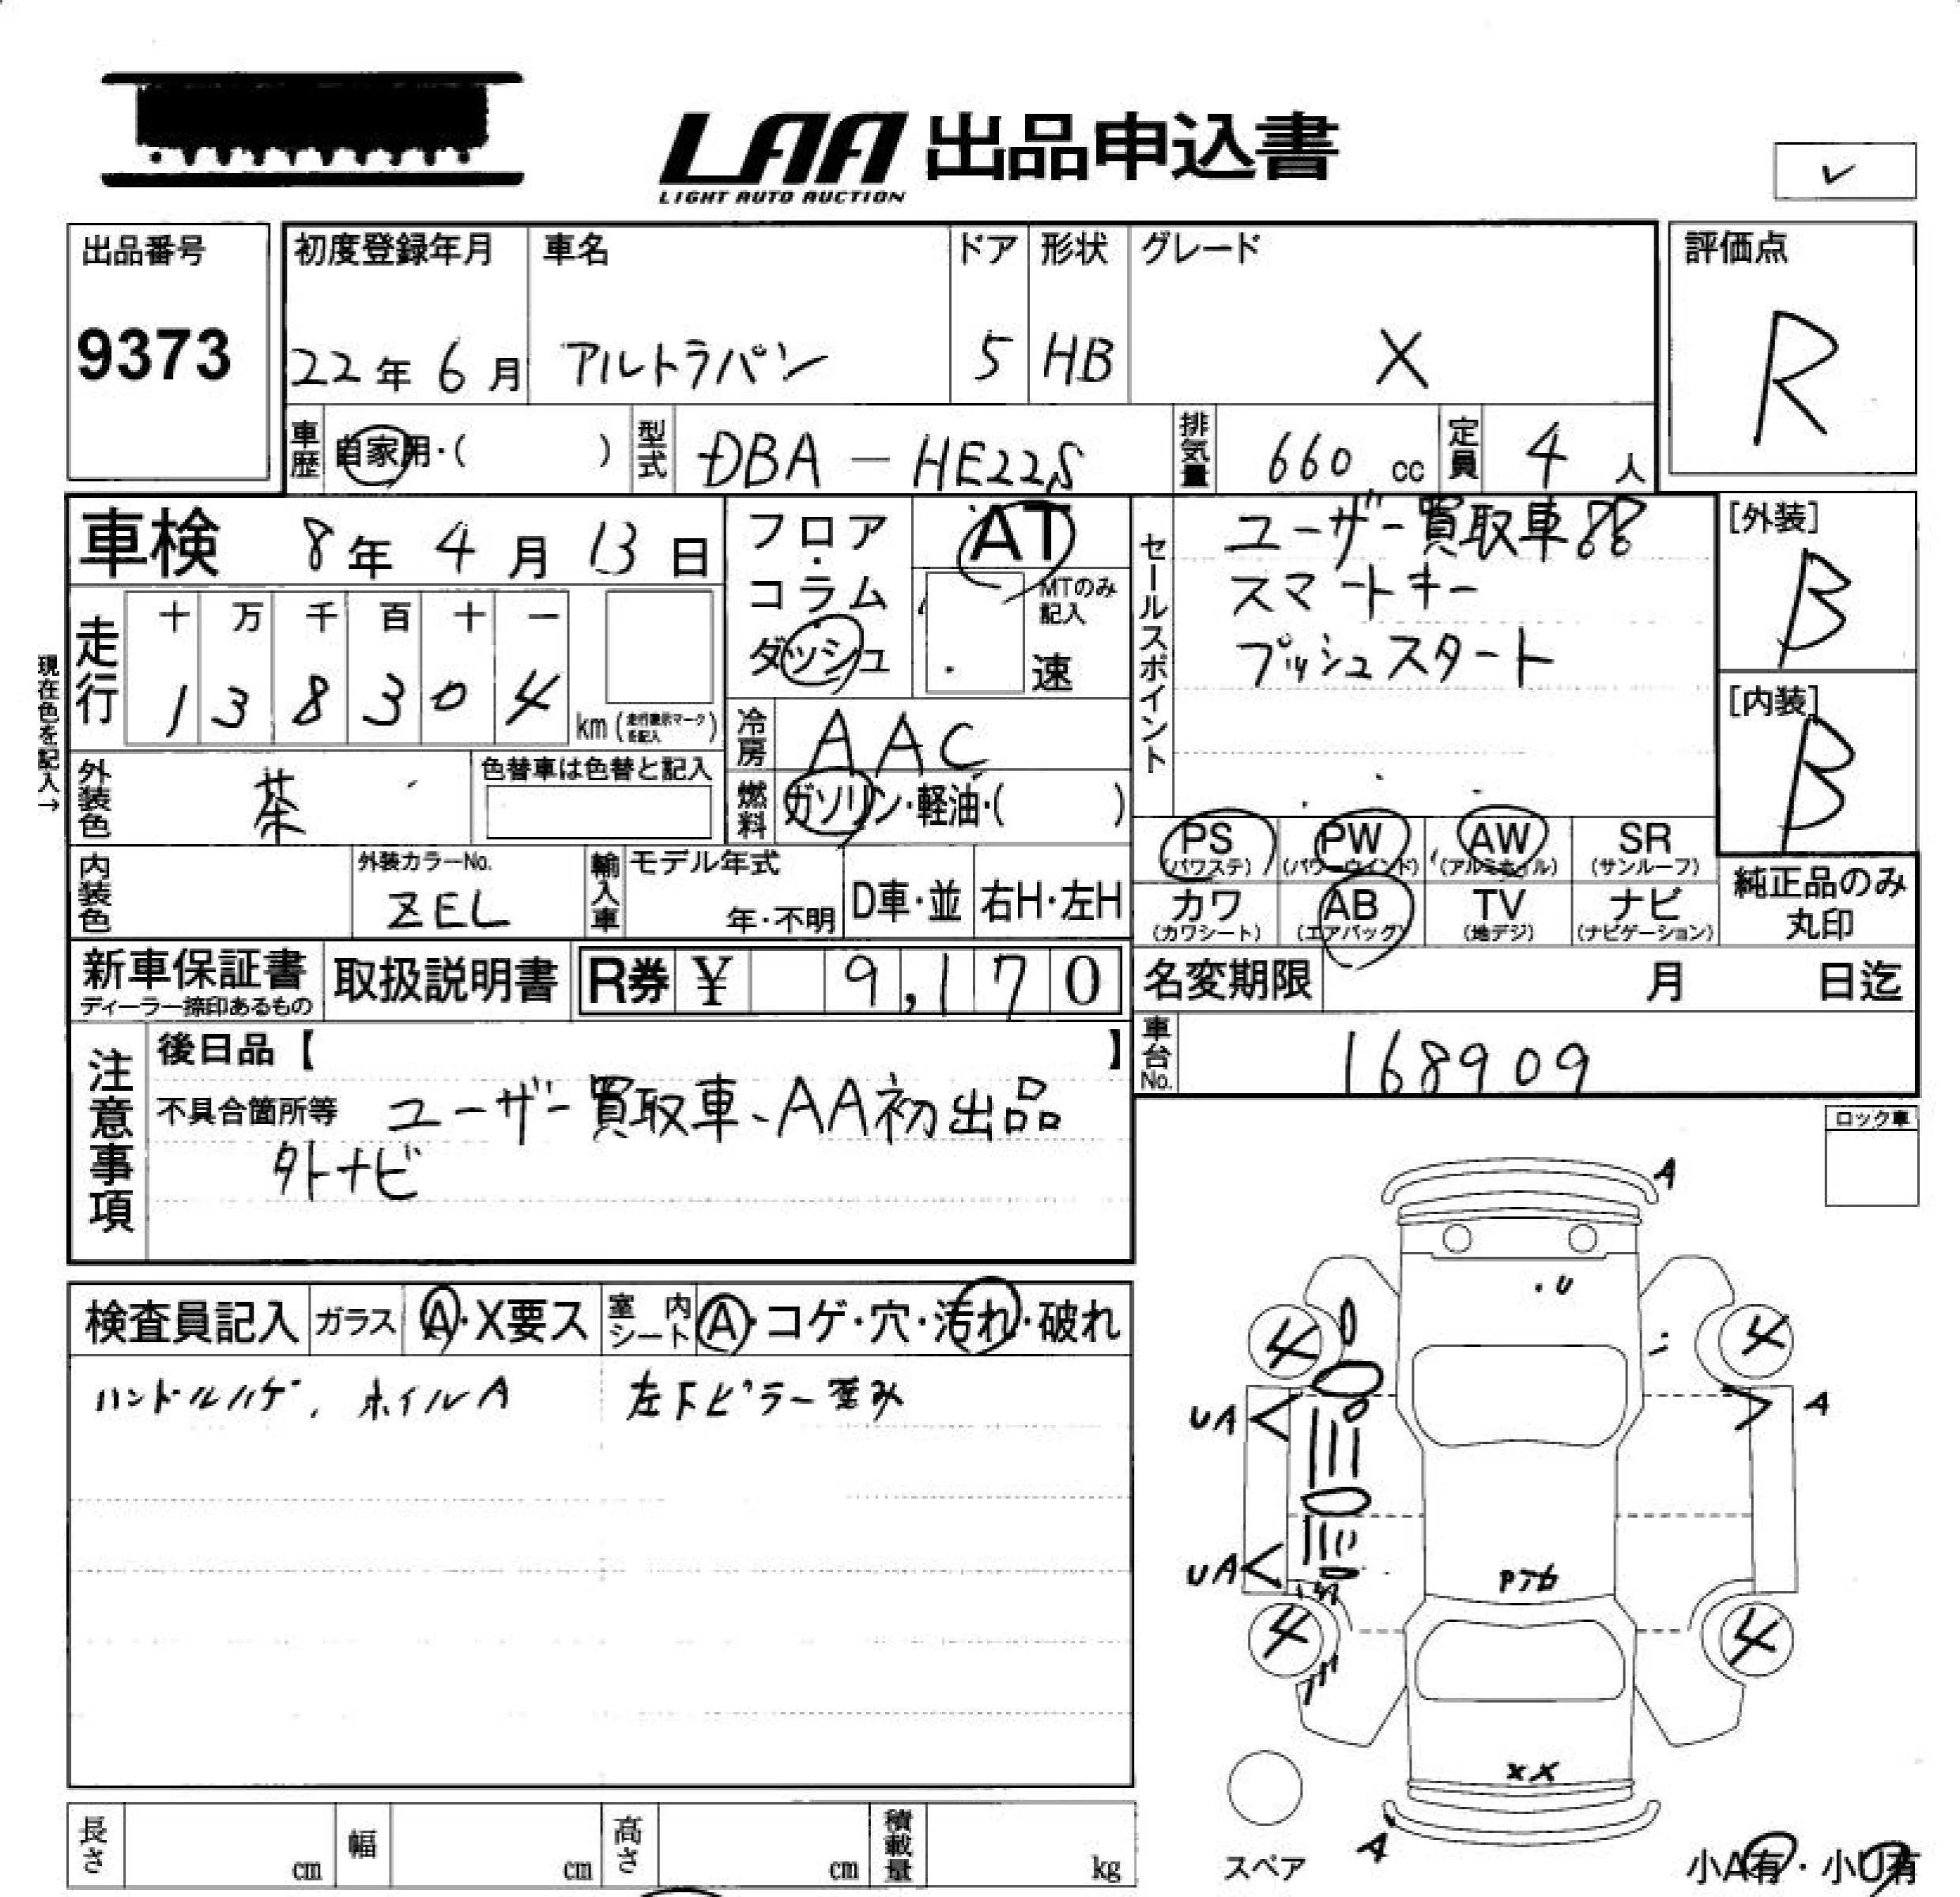 LAA 出品申込書
LIGHT AUTO AUCTION
出品番号 初度登録年月 車名 ドア 形状 グレード 評価点
9373 22年 6月 アルトラパン 5 HB X R
車歴 自家用・( ) 型式 DBA-HE22S 排気量 660 cc 定員 4 人
車検 8年 4月 13日 フロア・コラム・ダッシュ AT MTのみ記入 速
セールスポイント ユーザー買取車
スマートキー
プッシュスタート
[外装] B
[内装] B
走行 十 万 千 百 十 一
1 3 8 3 0 4 km (走行表示マークを記入)
現在色を記入→
冷房 AAC
外装色 茶 色替車は色替と記入 燃料 ガソリン・軽油・( )
PS (パワステ) PW (パワーウィンド) AW (アルミホイル) SR (サンルーフ)
カワ (カワシート) AB (エアバッグ) TV (地デジ) ナビ (ナビゲーション)
純正品のみ丸印
内装色 外装カラーNo. ZEL 輸入車 モデル年式 年・不明 D車・並 右H・左H
新車保証書 ディーラー捺印あるもの 取扱説明書 R券 ¥ 9,170 名変期限 月 日迄
車台No. 168909
注意事項 後日品【 】
不具合箇所等 ユーザー買取車、AA初出品
外ナビ
ロック車
検査員記入 ガラス A・X要ス 室内シート A・コゲ・穴・汚れ・破れ
ハンドルハゲ、ホイルA 左下ピラー歪み
A
U
4 4
UA A
UA
4 4
XX
A
スペア
小A有・小U有
長さ cm 幅 cm 高さ cm 積載量 kg